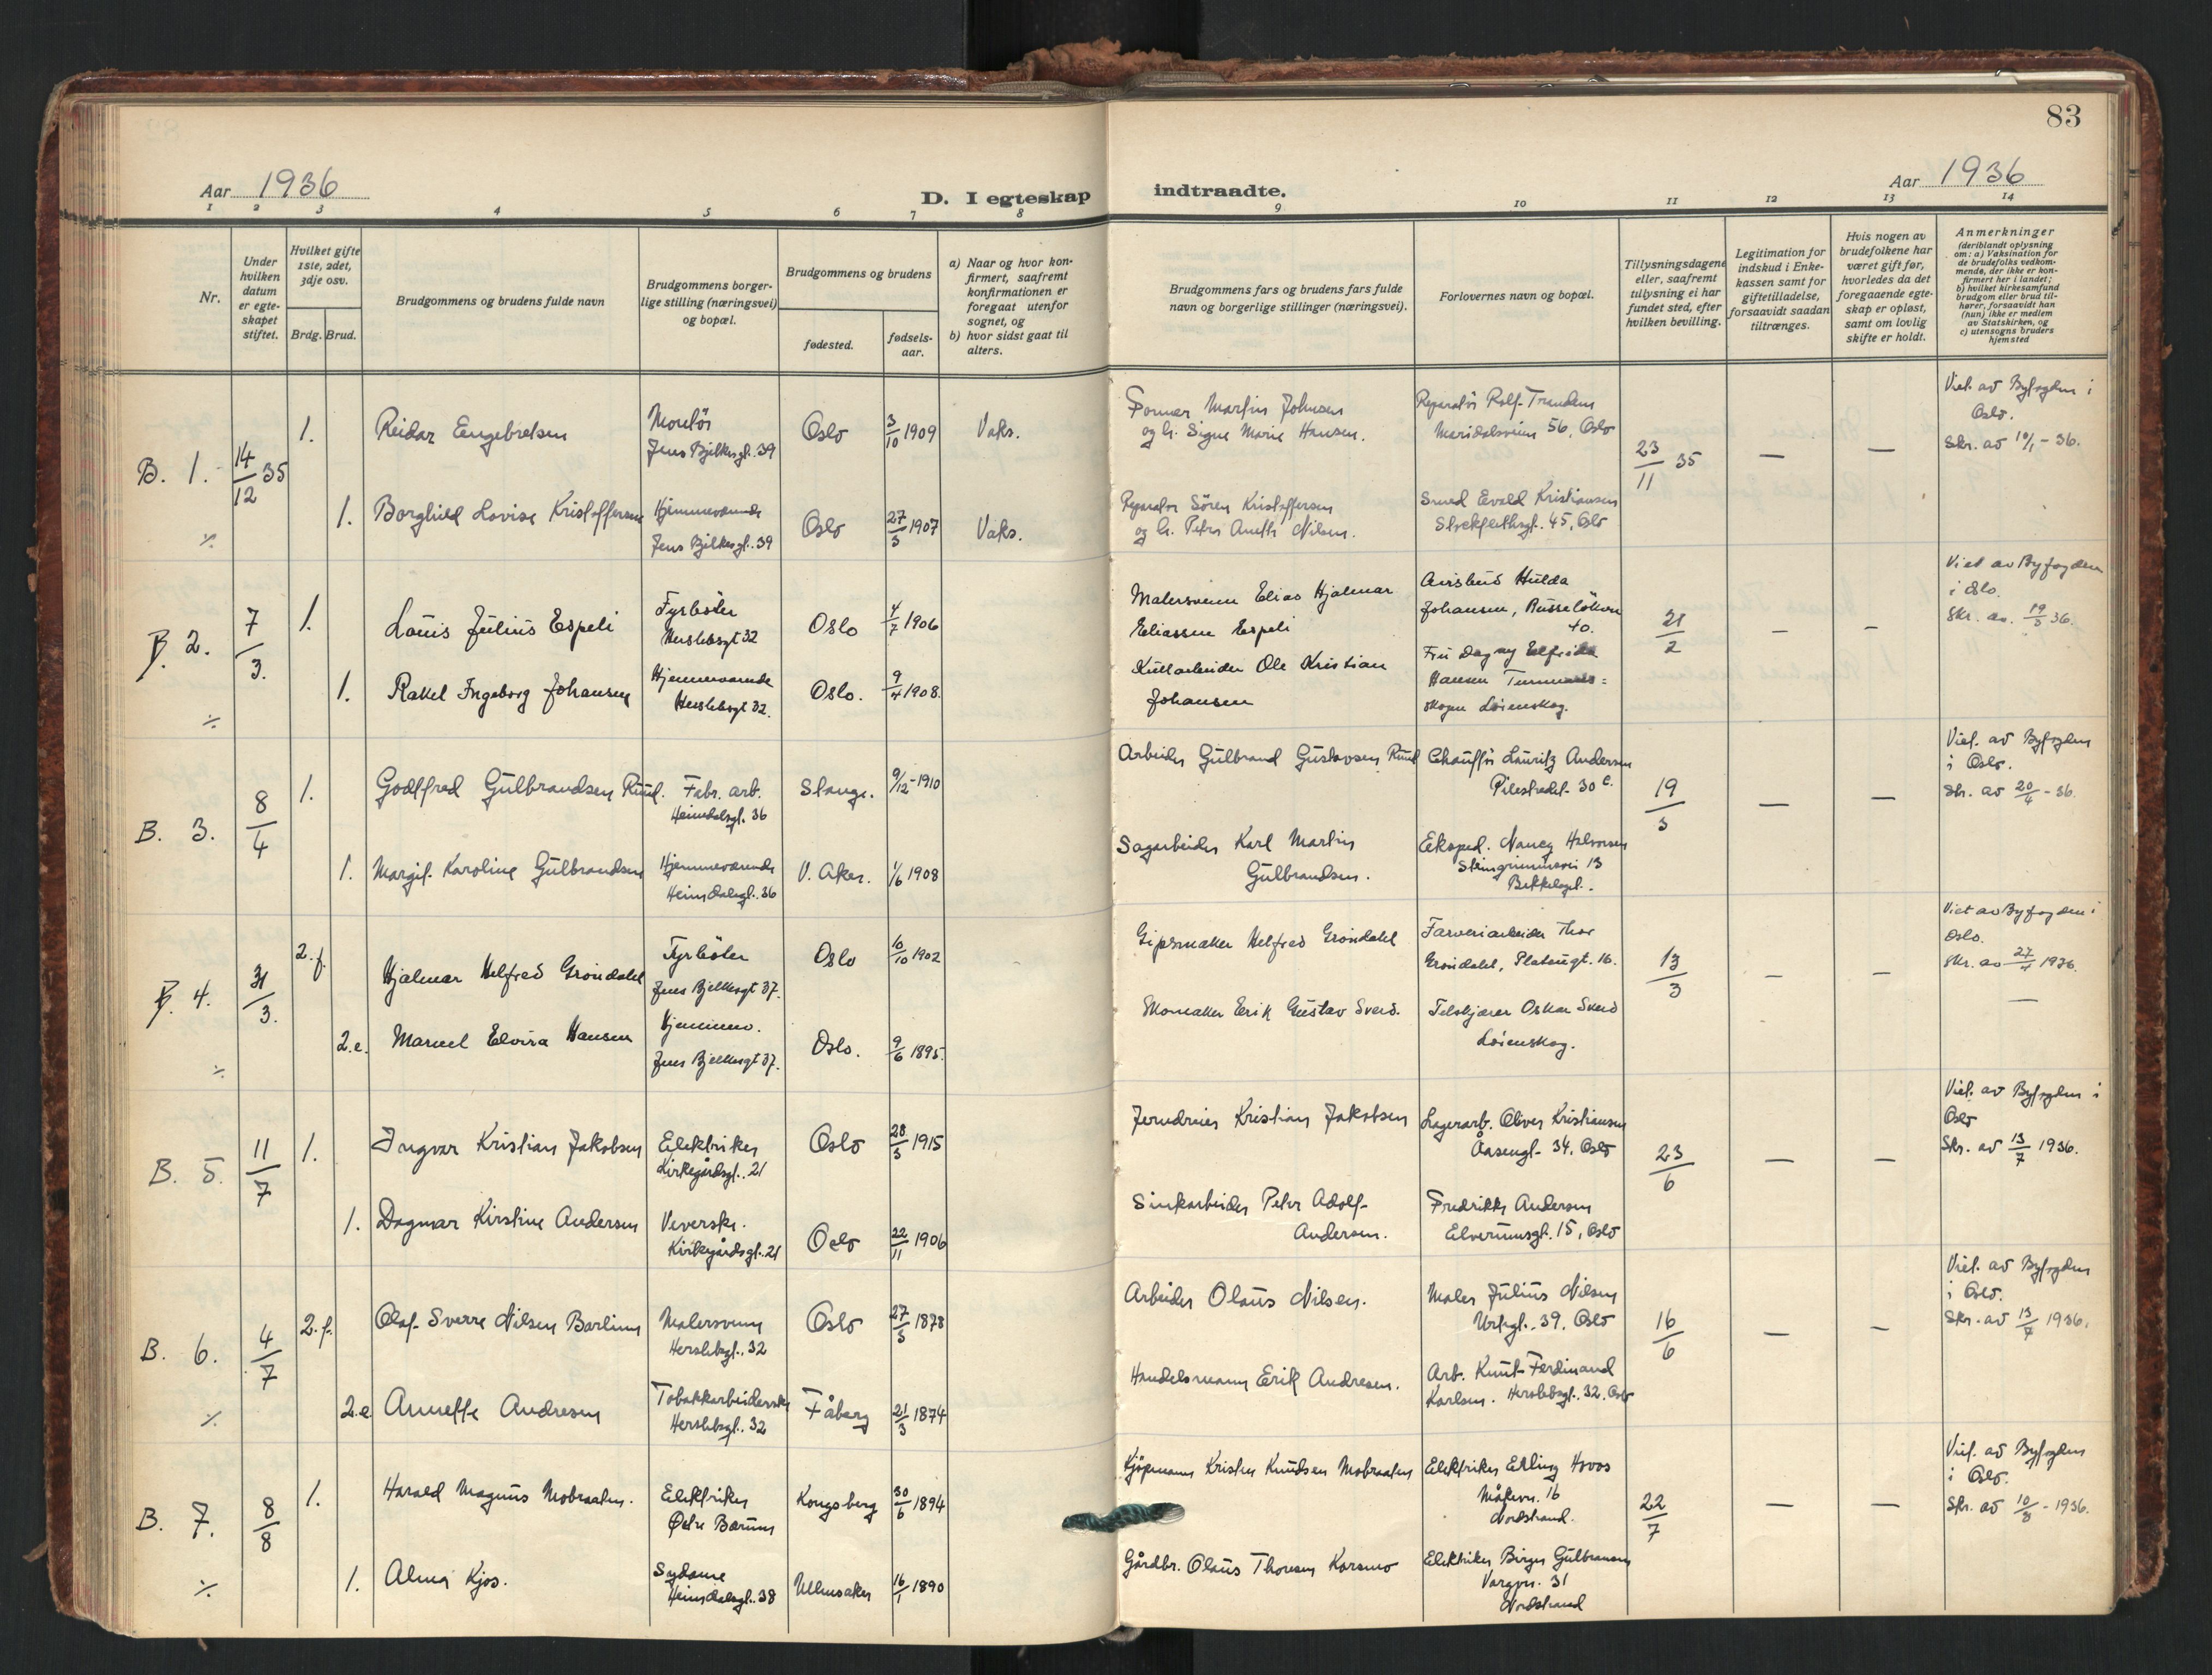 83
Aar 1936
D. I egteskap indtraadte.
Aar 1936
1 2 3 4 5 6 7 8 9 10 11 12 13 14
Nr.
Under hvilken datum er egteskapet stiftet.
Hvilket gifte 1ste, 2det, 3dje osv.
Brdg. Brud.
Brudgommens og brudens fulde navn
Brudgommens borgerlige stilling (næringsvei) og bopæl.
Brudgommens og brudens
fødested.
fødselsaar.
a) Naar og hvor konfirmert, saafremt konfirmationen er foregaat utenfor sognet, og
b) hvor sidst gaat til alters.
Brudgommens fars og brudens fars fulde navn og borgerlige stillinger (næringsvei).
Forlovernes navn og bopæl.
Tillysningsdagene eller, saafremt tillysning ei har fundet sted, efter hvilken bevilling.
Legitimation for indskud i Enkekassen samt for giftetilladelse, forsaavidt saadan tiltrænges.
Hvis nogen av brudefolkene har været gift før, hvorledes da det foregaaende egteskap er opløst, samt om lovlig skifte er holdt.
Anmerkninger
(deriblandt oplysning om: a) Vaksination for de brudefolks vedkommende, der ikke er konfirmert her i landet;
b) hvilket kirkesamfund brudgom eller brud tilhører, forsaavidt han (hun) ikke er medlem av Statskirken, og
c) utensogns bruders hjemsted
B. 1. 14/12 35
1. Reidar Engebretsen Montør Jens Bjelkesgt. 39 Oslo 3/10 1909 Vaks.
Former Martin Johnsen og h. Signe Marie Hansen.
Reparatør Rolf Trandem Maridalsveien 56, Oslo
23/11 35 — —
Viet av Byfogden i Oslo.
Skr. av 10/1 - 36.
1. Borghild Lovise Kristoffersen Hjemmeværende Jens Bjelkesgt. 39 Oslo 27/3 1907 Vaks.
Reparatør Søren Kristoffersen og h. Petra Anette Nilsen.
Smed Evald Kristiansen 45, Oslo
B. 2. 7/3.
1. Louis Julius Espeli Fyrbøter Herslebsgt 32 Oslo 4/7 1906
Malersvenn Elias Hjalmar Eliassen Espeli
Avisbud Hulda Johansen, Russeløkkvn 40.
21/2 — —
Viet av Byfogden i Oslo.
Skr. av. 19/3 36.
1. Rakel Ingeborg Johansen Hjemmeværende Herslebsgt 32. Oslo. 9/4 1908.
Kullarbeider Ole Kristian Johansen
Fru Dagny Elfrida Hansen skogen Lørenskog.
B. 3. 8/4
1. Godtfred Gulbrandsen Ruud. Fabr. arb. Heimdalsgt. 36 Stange. 9/12 1910
Arbeider Gulbrand Gustavsen Ruud
Chauffør Lauritz Andersen Pilestredet 30 c.
19/3 — —
Viet av Byfogden i Oslo.
Skr. av 20/4 - 36.
1. Margit Karoline Gulbrandsen Hjemmeværende Heimdalsgt. 36 V. Aker. 1/6 1908
Sagarbeider Karl Martin Gulbrandsen.
Eksped. Nancy Halvorsen 13 Bekkelaget.
B. 4. 31/3.
2. f. Hjalmar Helfred Grøndahl Fyrbøter Jens Bjelkesgt 37. Oslo 10/10 1902
Gipsmaker Helfred Grøndahl
Farveriarbeider Thor Grøndahl, Platougt. 16.
13/3 — —
Viet av Byfogden i Oslo.
Skr. av 27/4 1936.
—
2. e. Elvira Hansen Hjemmev. Jens Bjelkesgt 37. Oslo. 9/6 1895.
Skomaker Erik Gustav Sverd.
Oskar Sverd Lørenskog.
B. 5. 11/7
1. Ingvar Kristian Jakobsen Elektriker Kirkegårdsgt. 21 Oslo 28/3 1915
Jerndreier Kristian Jakobsen
Lagerarb. Oliver Kristiansen Åsengt. 34, Oslo
23/6 — —
Viet av Byfogden i Oslo
Skr. av 13/7 1936.
1. Dagmar Kirstine Andersen Veverske. Kirkegårdsgt. 21 Oslo 22/11 1906
Sinkarbeider Peter Adolf Andersen.
Fredrikke Andersen Elverumsgt. 15, Oslo
B. 6. 4/7
2. f. Olaf Sverre Nilsen Barlinn Malersvenn Herslebsgt. 32 Oslo 27/3 1878
Arbeider Olaus Nilsen.
Maler Julius Nilsen Urtegt. 39, Oslo
16/6 — —
Viet av Byfogden i Oslo.
Skr. av 13/7 1936.
2. e Annette Andresen Tobakkarbeiderske Herslebsgt. 32 Fåberg 21/3 1874
Handelsmann Erik Andresen.
Arb. Knut Ferdinand Karlsen. Herslebsgt. 32. Oslo
B. 7. 8/8
1. Harald Magnus Mobraaten. Elektriker Østre Bærum Kongsberg 30/6 1894
Kjøpmann Kristen Knudsen Mobraaten
Elektriker Erling Hovos Måkevn. 16 Nordstrand.
22/7 — —
Viet av Byfogden i Oslo.
Skr. av 10/8 - 1936.
1. Alma Kjos. Sydame Heimdalsgt. 38 Ullensaker 16/1 1890
Gårdbr. Olaus Thoresen Karsmo
Elektriker Birger Gulbransen Vargvn. 31 Nordstrand